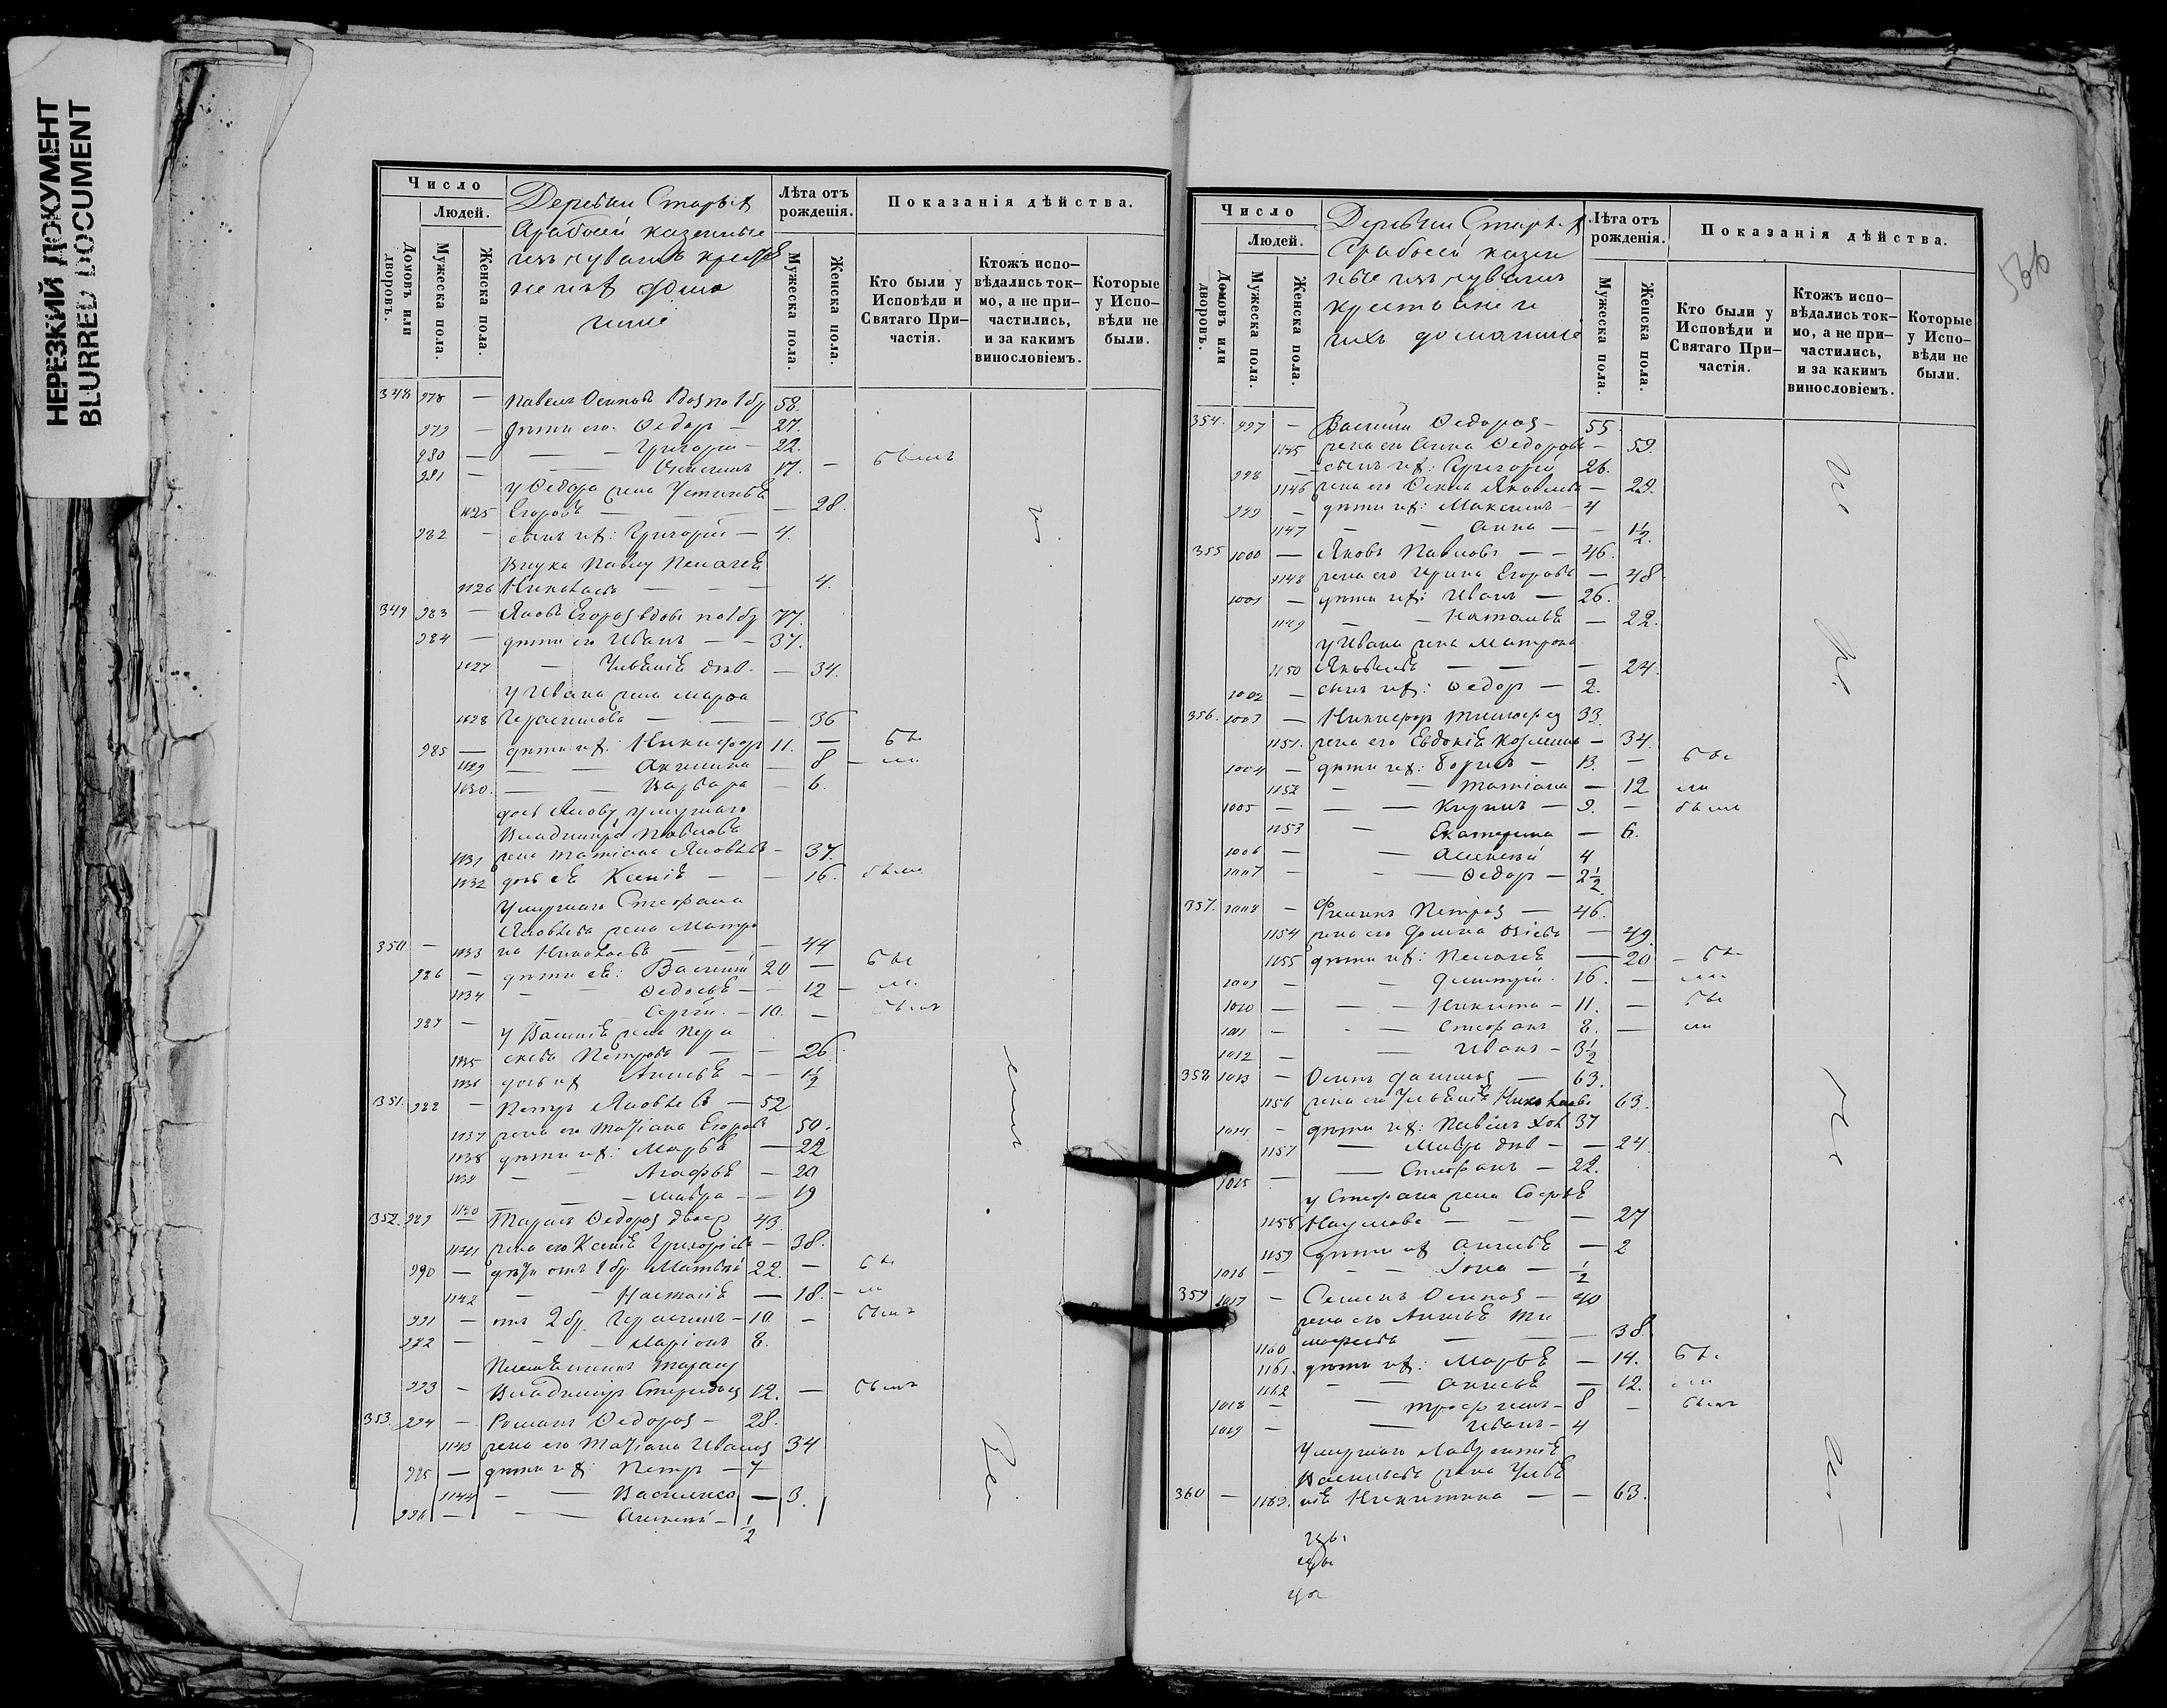 НЕРЕЗКИЙ ДОКУМЕНТ
BLURRED DOCUMENT
Число
Людей.
Домовъ или дворовъ.
Мужеска пола.
Женска пола.
Деревни Старыхъ
казенные
изъ чувашъ
не ихъ дома
шніе
Лѣта отъ рожденія.
Мужеска пола.
Женска пола.
Показанія дѣйства.
Кто были у Исповѣди и Святаго При-
частія.
Ктожъ испо-
вѣдались ток-
мо, а не при-
частились,
и за какимъ
винословіемъ.
Которые
у Испо-
вѣди не
были.
348 978 — Павелъ Осиповъ вдов по 1 бр 58.
979 — дѣти его: Ѳедоръ — 27.
980 — — Григорій — 22.
981 — — 17. — былъ
у Ѳедора жена Устинья
1125 Егорова — — 28.
982 — сынъ ихъ: Григорій — 4.
Внука Павлу Пелагея
1126 Николаева — — 4.
349 983 — Яковъ Егоровъ вдовъ по 1 бр 77.
984 — дѣти его Иванъ — — 37.
1127 — Ульянія дѣв. — 34.
у Ивана жена Марѳа
1128 Герасимова — — — 36
985 — дѣти ихъ: Никифоръ 11. — бы
1129 — — Акилина — 8 — ли
1130. — — Варвара — 6.
Владиміра Павлова
1131 жена Татіана Яковлева — 37.
1132 дочь ея Ксенія — — 16. были
умершаго Стефана
Яковлева жена Матро
350 — 1133 на Николаева — — 44
986 — дѣти ея: Василій 20 — бы
1134 — — Ѳедосья — — 12 — ли
987 — — Сергій. — 10. — былъ
у Василія жена Пара
1135 скева Петрова — — 26.
1136 дочь ихъ Анисья — — 1½
351. 988 — Петръ Яковлевъ — 52
1137 жена его Татіана Егорова 50.
1138 дѣти ихъ: Марья — 22
1139 — — Агафья — 20
1140 — — Мавра — — 19
352. 989 — Тарасъ Ѳедоровъ двоеж 43.
1141 жена его Ксенія Григорьева — 38.
990 — дѣти отъ 1 бр. Матвѣй 22. — бы
1142 — — Настасія — 18. — ли
991 — отъ 2 бр. Герасимъ — 10. — былъ
992 — — Ларіонъ 8.
Племянникъ Тарасу
993 — Владиміръ Спиридоновъ 12. — былъ
353. 994 — Романъ Ѳедоровъ — 28.
1143 жена его Татіана Иванова 34
995 — дѣти ихъ: Петръ — 7
1144 — — Василиса — 3.
996 — — Алексѣй — ½
Число
Людей.
Домовъ или дворовъ.
Мужеска пола.
Женска пола.
Деревни Старыхъ
казен
ные изъ чувашъ
крестьяне и
ихъ домашніе
Лѣта отъ рожденія.
Мужеска пола.
Женска пола.
Показанія дѣйства.
Кто были у Исповѣди и Святаго При-
частія.
Ктожъ испо-
вѣдались ток-
мо, а не при-
частились,
и за какимъ
винословіемъ.
Которые
у Испо-
вѣди не
были.
566
354. 997 — Василій Ѳедоровъ — 55.
1145 жена его Анна Ѳедорова — 59.
998 — сынъ ихъ: Григорій 26.
1146 жена его Яковлева — 29.
999 — дѣти ихъ: Максимъ — 4
1147 — — Анна — — 1½.
355 1000 — Яковъ Павловъ — — 46.
1148 жена его Ирина Егорова — 48
1001 — дѣти ихъ: Иванъ — 26.
1149 — — Наталья — 22.
у Ивана жена Матрона
1150 Яковлева — — — 24.
1002 — сынъ ихъ: Ѳедоръ — 2.
356. 1003 — Никифоръ Тимоѳеев 33.
1151. жена его Евдокія Козмина — 34.
1004 — дѣти ихъ: Борисъ — 13. — бы
1152 — — Татіана — 12 ли
1005 — — — 9. — былъ
1153 — Екатерина — 6.
1006 — — Алексѣй 4
1007 — — — Ѳедоръ — 2½
357. 1008 — Филипъ Петровъ — 46.
1154 жена его — 49.
1155 дѣти ихъ: Пелагея — 20 — бы
1009 — — Димитрій. 16. — ли
1010 — — Никита — 11. — бы
1011 — — Стефанъ 8. — ли
1012 — — Иванъ — 3½
358 1013 — Осипъ — 63.
1156 жена его Ульянія Николаева 63.
1014 — дѣти ихъ: Павелъ хол 37
1157 — Мавра дѣв — — 24
1015 — — Стефанъ — 22.
у Стефана жена Софья
1158 Наумова — — — 27
1159 дѣти ихъ Анисья — 2
1016 — — Іона — ½
359 1017 — Семенъ Осиповъ — 40
жена его Анисья Ти
1160 моѳеева — — — 38.
1161. дѣти ихъ: Марья — 14. бы
1162 — — Анисья — 12. ли
1018 — — Трофимъ — 8 — былъ
1019 — — Иванъ — 4
Умершаго Лаврентія
Васильева жена Улья
360 — 1163. нія Никитина — — 63.